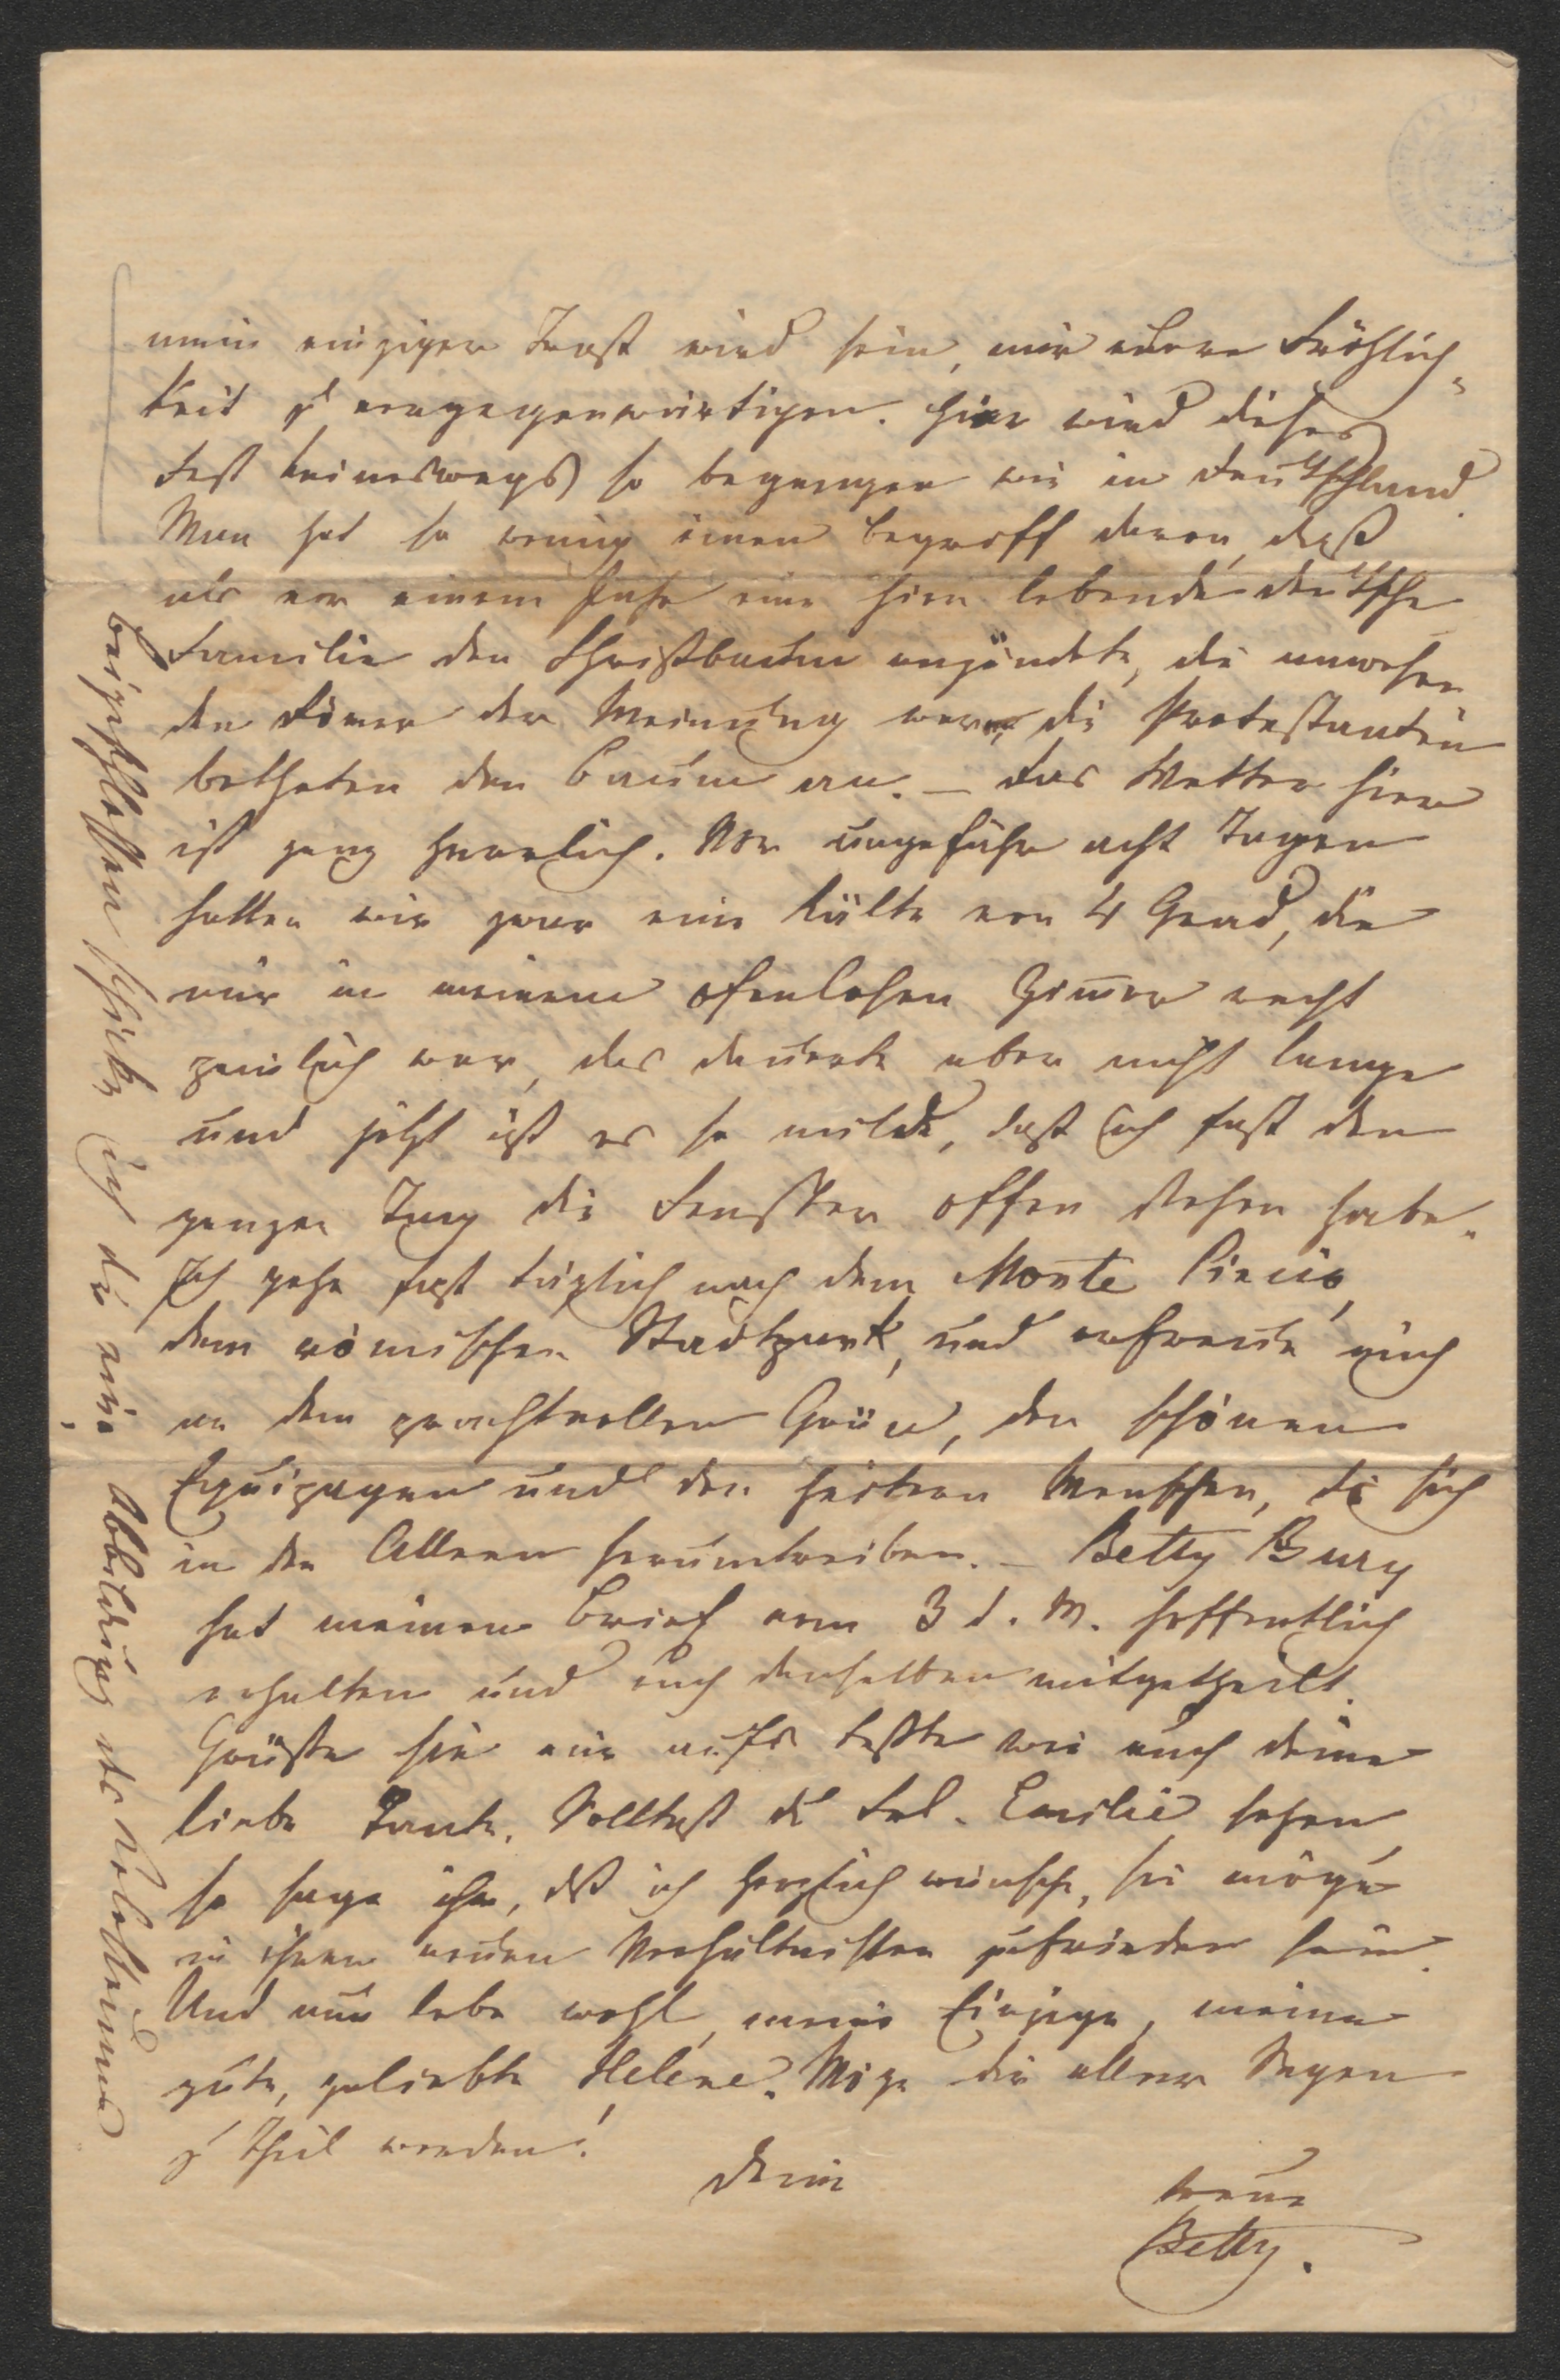 mein einziger Trost wird sein, mir Euere Fröhlich-
keit zu vergegenwärtigen. Hier wird dieses
Fest keineswegs so begangen wie in Deutschland.
Man hat so wenig einen Begriff davon, daß
als vor einem Jahr eine hier lebende deutsche
Familie den Christbaum anzündete, die anwesen
den Römer der Meinung waren, die Protestanten
betheten den Baum an. – Das Wetter hier
ist ganz herrlich. Vor ungefähr acht Tagen
hatten wir zwar eine Kälte von 4 Grad, die
mir in meinem ofenlosen Zimmer recht
peinlich war, das dauerte aber nicht lange
und jetzt ist es so milde, daß ich fast den
ganzen Tag die Fenster offen stehen habe.
Ich gehe fast täglich nach dem Monte Pincio,
dem römischen Stadtpark, und erfreue mich
an dem prachtvollen Grün, den schönen
Equipagen und den heitern Menschen, die sich
in den Alleen herumtreiben. – Betty Bury
hat meinen Brief vom 3 d. M. hoffentlich
erhalten und euch denselben mitgetheilt.
Grüße sie mir aufs beste wie auch deine
liebe Tante. Solltest du Frl. Emilie sehen,
so sage ihr, daß ich herzlich wünsche, sie möge
in ihren neuen Verhältnissen zufrieden sein.
Und nun lebe wohl, meine Einzige, meine
gute, geliebte Helene. Möge dir aller Segen
zu Theil werden!
Deine
treue
Betty.
beigeschlossen schicke ich dir eine Abbildung des Kolosseums